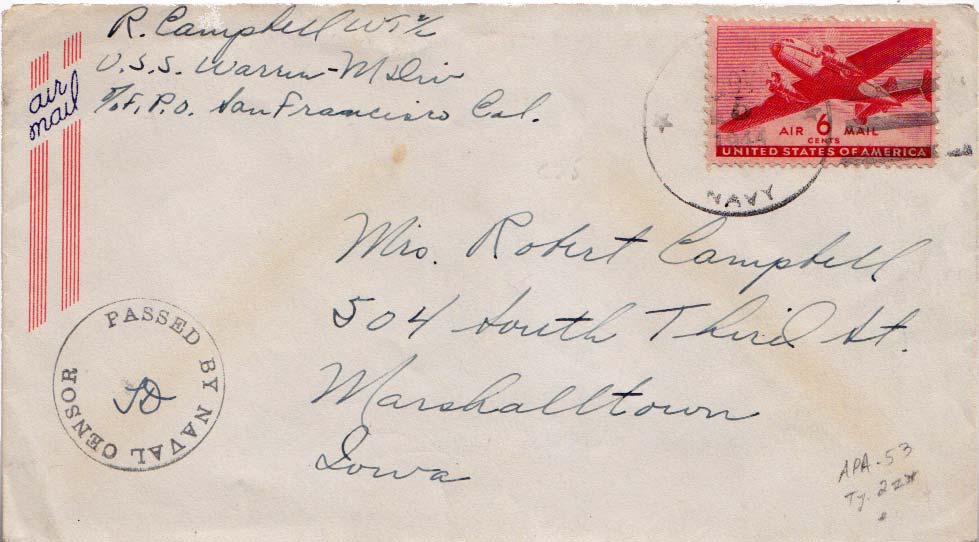 R. Campbell WT 2/c
U.S.S. Warren - M Div
℅ F.P.O. San Francisco Cal.
air
mail
AIR 6 MAIL
CENTS
UNITED STATES OF AMERICA
5
1944
NAVY
Mrs. Robert Campbell
504 South Third St.
Marshalltown
Iowa
PASSED BY NAVAL CENSOR
APA-53
Ty.